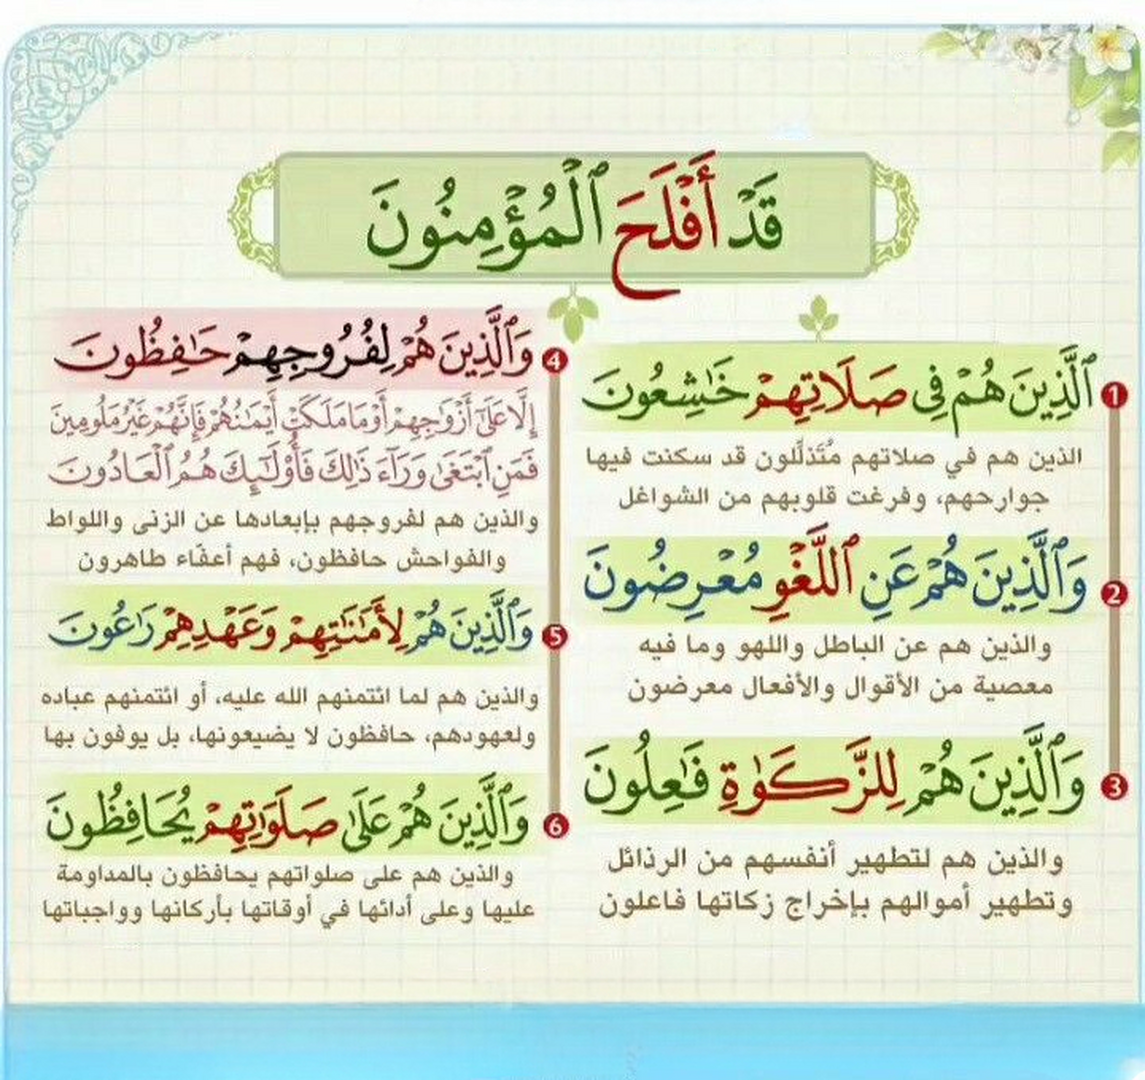 قَدْ أَفْلَحَ ٱلْمُؤْمِنُونَ
1
ٱلَّذِينَ هُمْ فِى صَلَاتِهِمْ خَٰشِعُونَ
الذين هم في صلاتهم مُتَذلِّلون قد سكنت فيها
جوارحهم، وفرغت قلوبهم من الشواغل
2
وَٱلَّذِينَ هُمْ عَنِ ٱللَّغْوِ مُعْرِضُونَ
والذين هم عن الباطل واللهو وما فيه
معصية من الأقوال والأفعال معرضون
3
وَٱلَّذِينَ هُمْ لِلزَّكَوٰةِ فَٰعِلُونَ
والذين هم لتطهير أنفسهم من الرذائل
وتطهير أموالهم بإخراج زكاتها فاعلون
4
وَٱلَّذِينَ هُمْ لِفُرُوجِهِمْ حَٰفِظُونَ
إِلَّا عَلَىٰٓ أَزْوَٰجِهِمْ أَوْ مَا مَلَكَتْ أَيْمَٰنُهُمْ فَإِنَّهُمْ غَيْرُ مَلُومِينَ
فَمَنِ ٱبْتَغَىٰ وَرَآءَ ذَٰلِكَ فَأُو۟لَٰٓئِكَ هُمُ ٱلْعَادُونَ
والذين هم لفروجهم بإبعادها عن الزنى واللواط
والفواحش حافظون، فهم أعفّاء طاهرون
5
وَٱلَّذِينَ هُمْ لِأَمَٰنَٰتِهِمْ وَعَهْدِهِمْ رَٰعُونَ
والذين هم لما ائتمنهم الله عليه، أو ائتمنهم عباده
ولعهودهم، حافظون لا يضيعونها، بل يوفون بها
6
وَٱلَّذِينَ هُمْ عَلَىٰ صَلَوَٰتِهِمْ يُحَافِظُونَ
والذين هم على صلواتهم يحافظون بالمداومة
عليها وعلى أدائها في أوقاتها بأركانها وواجباتها